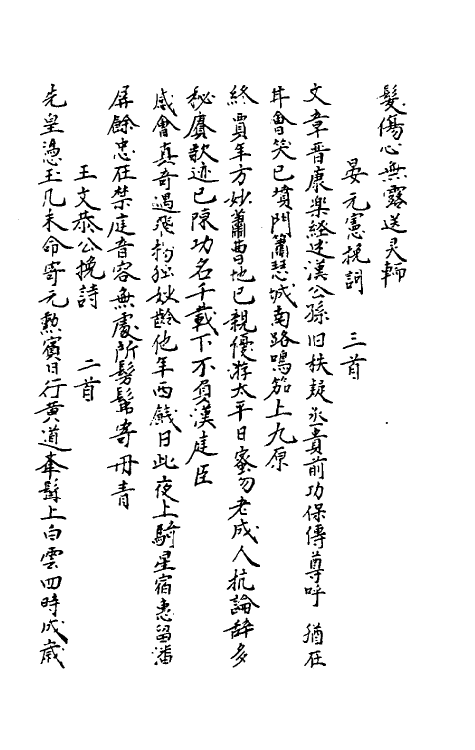 髮傷心無露送灵輀
晏元憲挽詞　三首
文章晋康樂經述漢公孫旧秩疑丞貴前功保傅尊呼　猶在
耳曾笑已墳門簫瑟城南路鳴笳上九原
終賈年方妙蕭曹地已親優游太平日蜜勿老成人抗論辞多
秘賡歌迹已陳功名千載下不負漢庭臣
感會真奇遇飛揚妙齡他年西餞日此夜上騎星宿惠留藩
屏餘忠在禁庭音容無處所髣髴寄丹青
王文恭公挽詩　二首
先皇憑玉几末命寄元勲賓日行黄道攀髯上白雲四時成歲